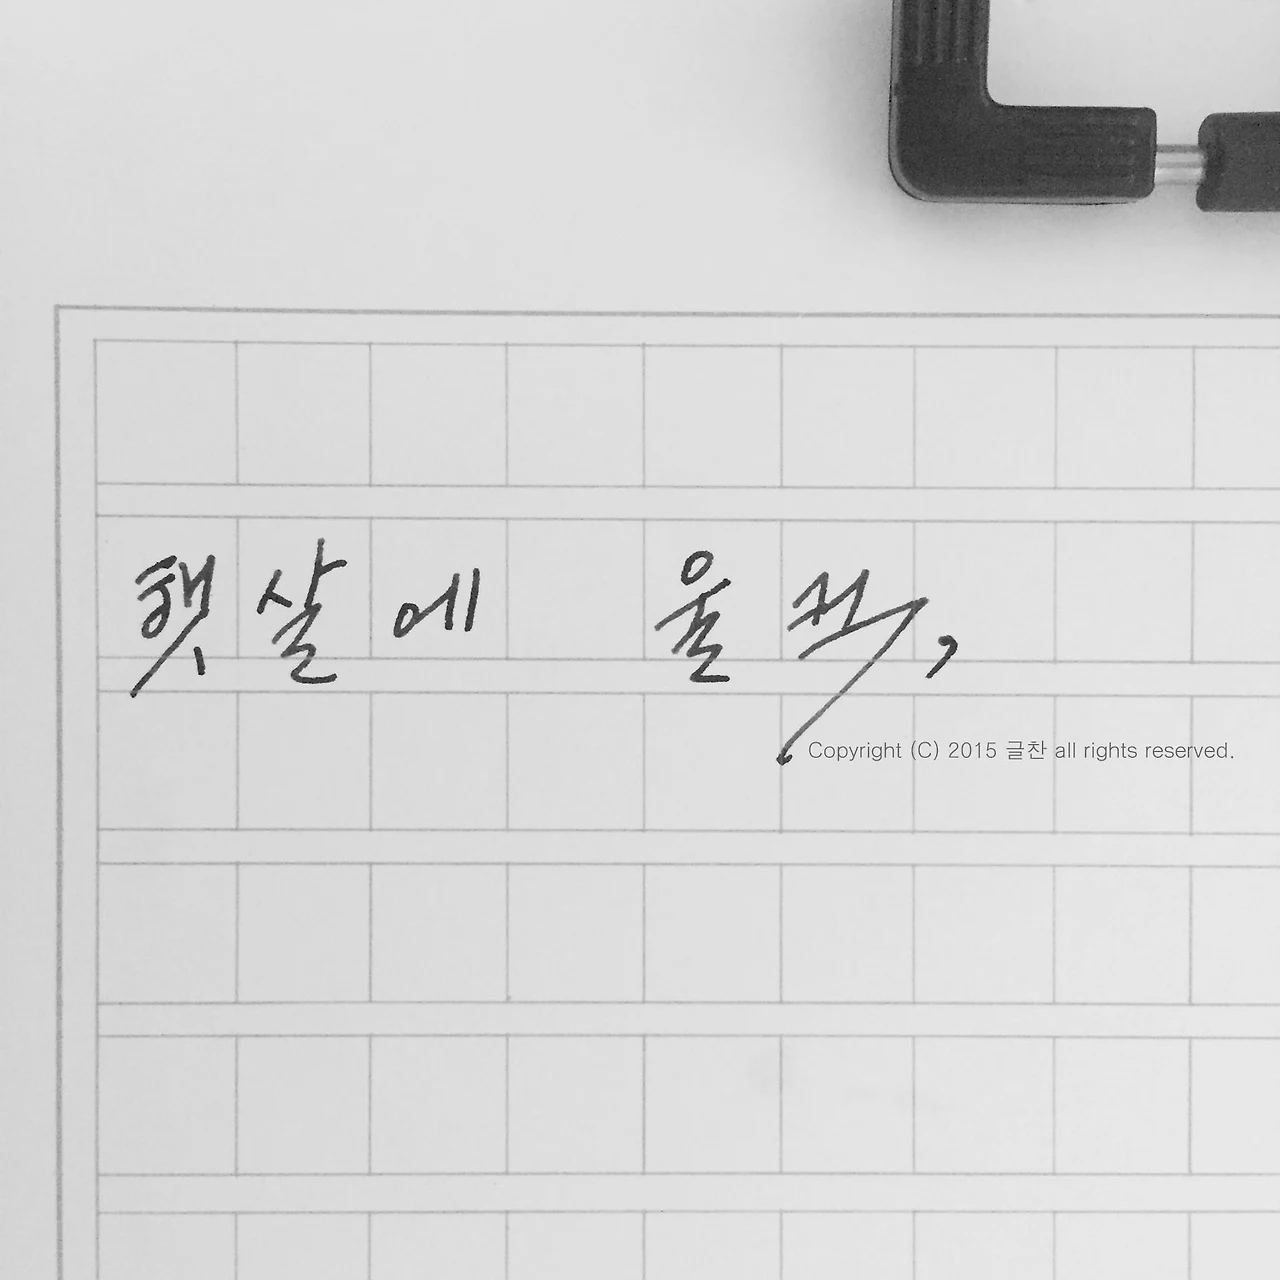 햇살에 울컥,
Copyright (C) 2015 글찬 all rights reserved.